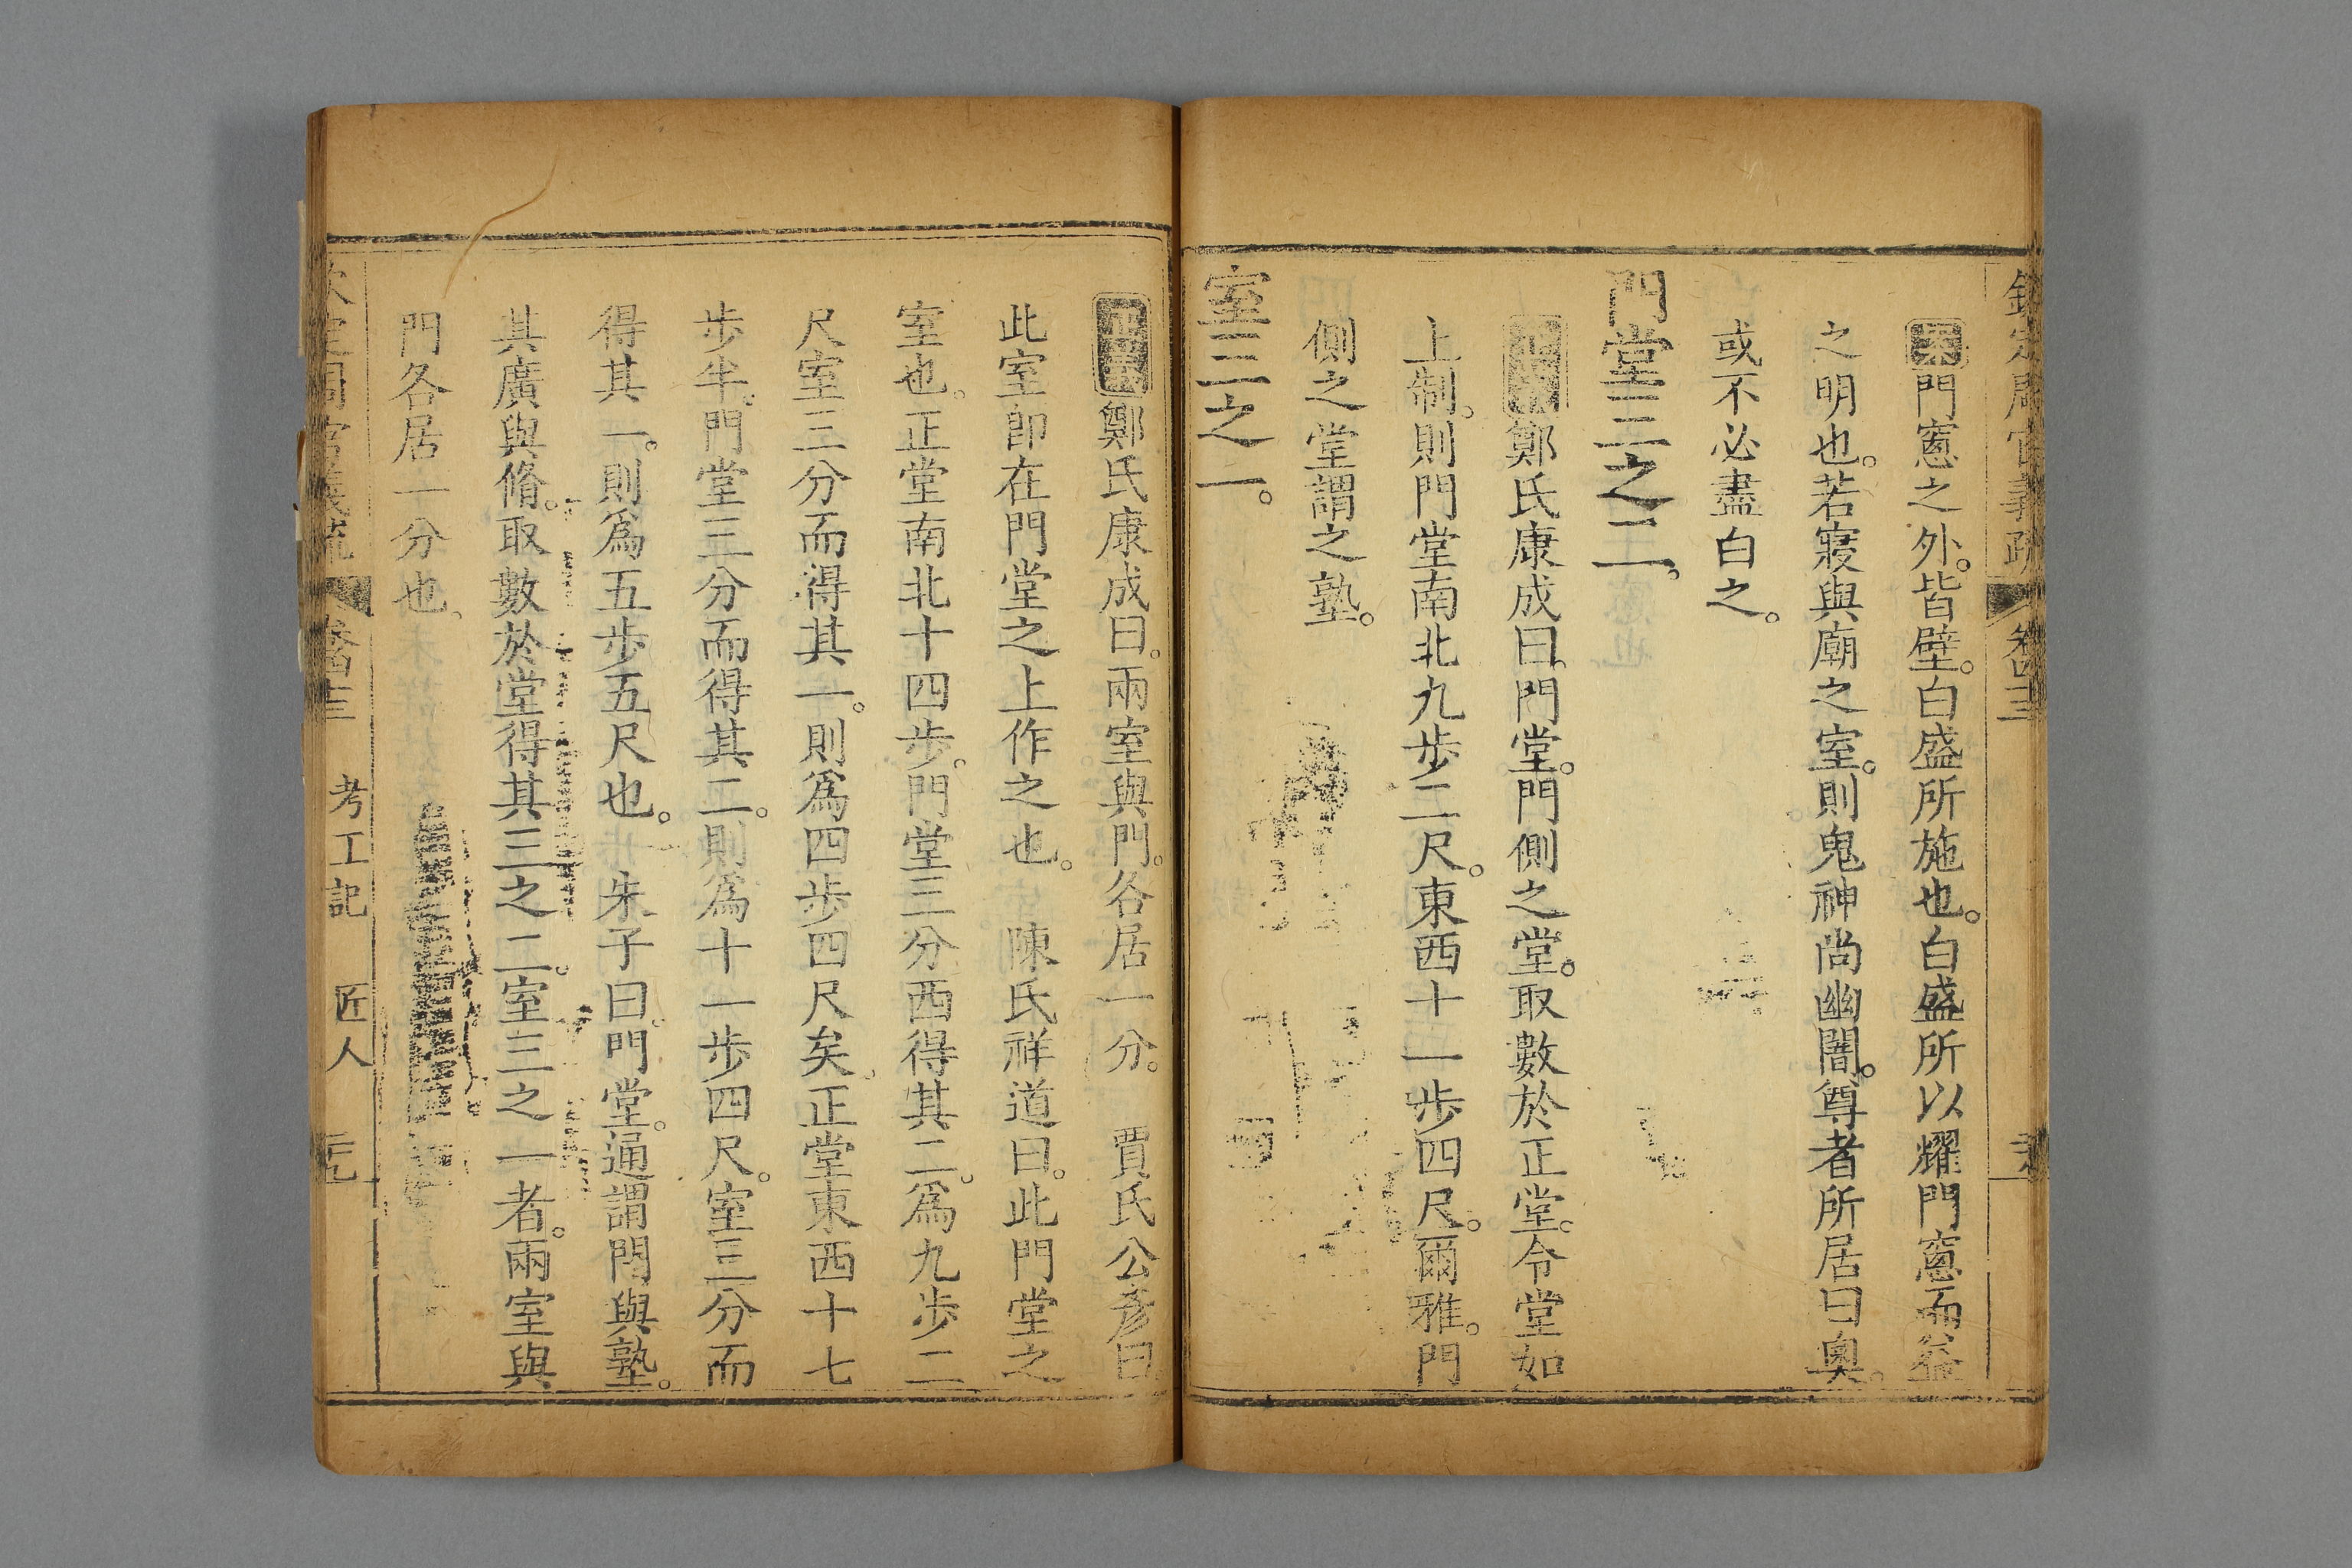 欽定周官義疏 卷四十三
案門窻之外。皆壁。白盛所施也。白盛所以耀門窻而益
之明也。若寢與廟之室。則鬼神尚幽闇。尊者所居曰奧。
或不必盡白之。
門堂三之二。
鄭氏康成曰。門堂。門側之堂。取數於正堂。令堂如
上制。則門堂南北九步二尺。東西十一步四尺。爾雅。門
側之堂謂之塾。
室三之一。
鄭氏康成曰。兩室與門。各居一分。 賈氏公彥曰。
此室卽在門堂之上作之也。 陳氏祥道曰。此門堂之
室也。正堂南北十四步。門堂三分西得其二。爲九步二
尺室三分而得其一。則爲四步四尺矣。正堂東西十七
步半。門堂三分而得其二。則爲十一步四尺。室三分而
得其一。則爲五步五尺也。 朱子曰。門堂。通謂門與塾。
其廣與脩。取數於堂得其三之二。室三之一者。兩室與
門各居一分也。
欽定周官義疏 卷四十三 考工記 匠人